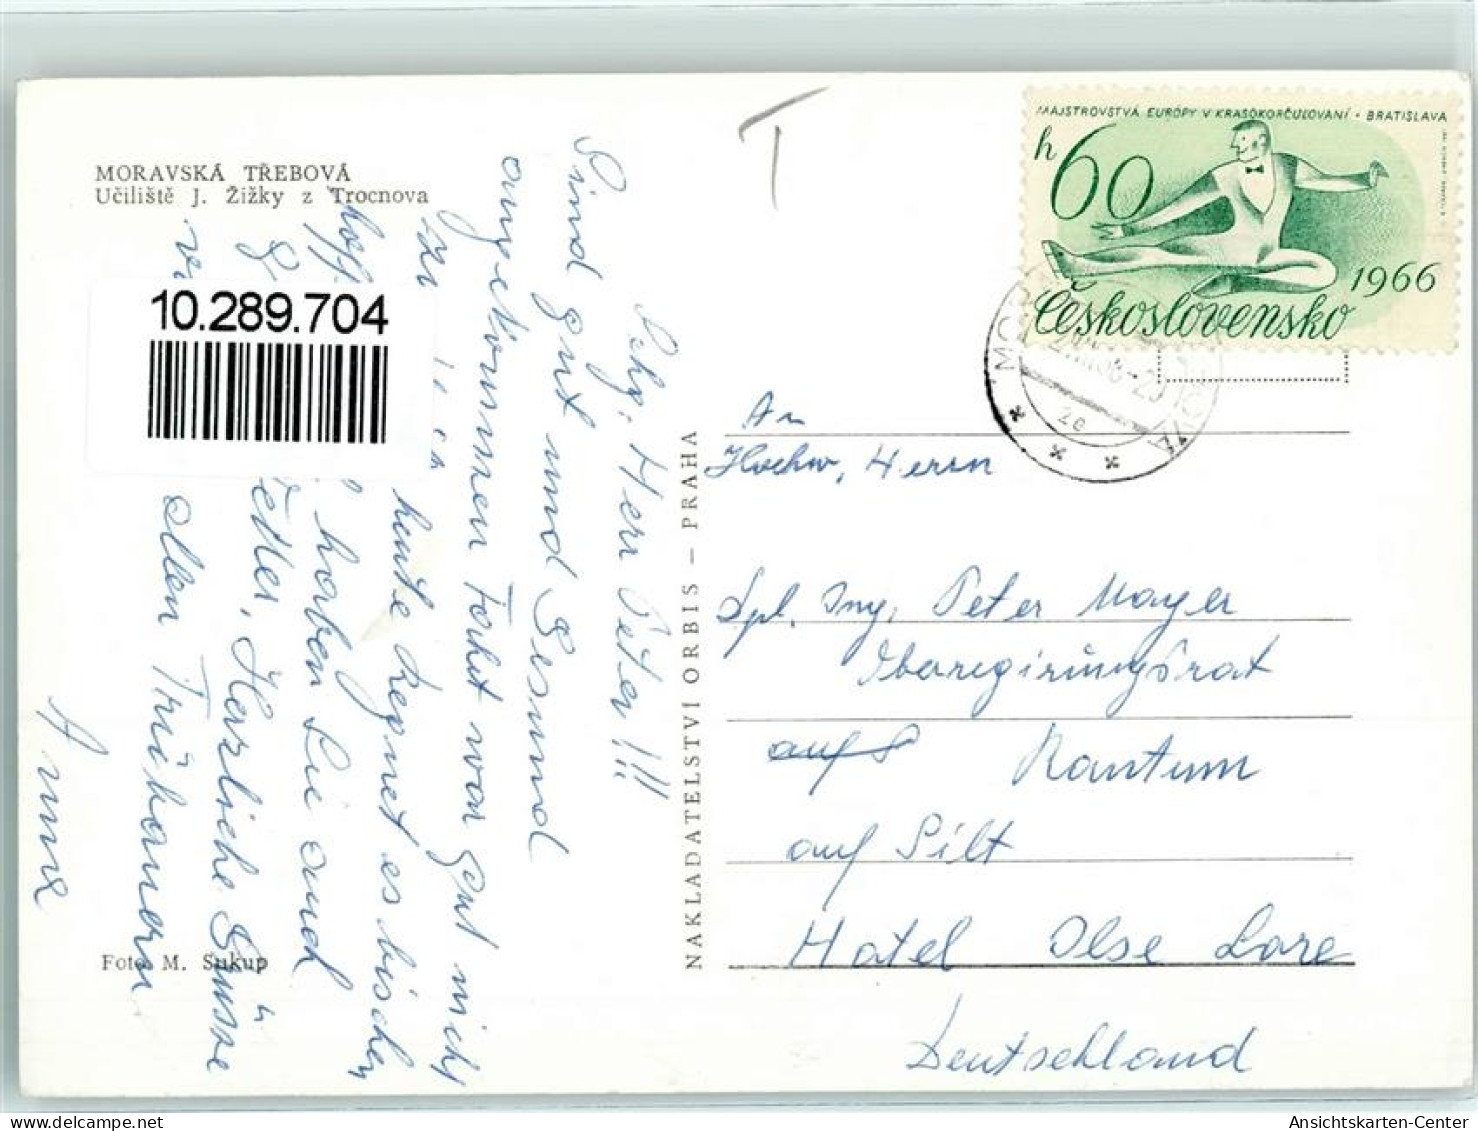 MORAVSKÁ TŘEBOVÁ
Učiliště J. Žižky z Trocnova
10.289.704
Sehg. Herr Peter!!!
Sind gut und Gesund
angekommen Fahrt war gut nicht
zu
heute Regnet es bischen
hoff
haben Sie auch
Herzliche Grüsse
allen Trübauern
Anna
Foto M. Sukup
NAKLADATELSTVÍ ORBIS – PRAHA
T
MAJSTROVSTVÁ EURÓPY V KRASOKORČUĽOVANÍ • BRATISLAVA
h 60
1966
Československo
An
Hochw. Herrn
Dpl. Ing. Peter Mayer
Oberregirungsrat
auf Kantum
auf Silt
Hotel Ilse Lore
Deutschland
Ansichtskarten-Center